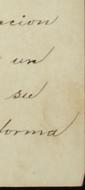 acion
un
su
forma